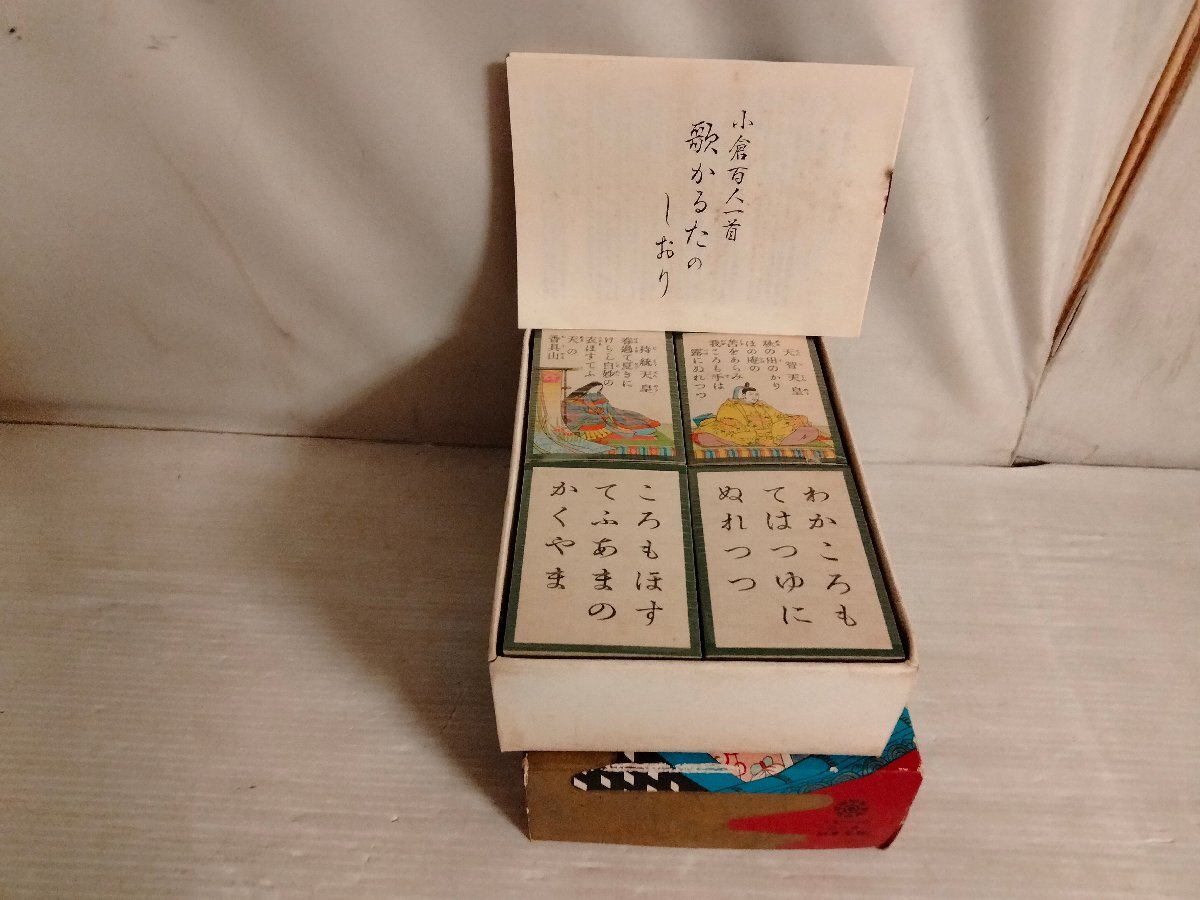 小倉百人一首
歌かるたの
しおり
天智天皇
秋の田のかり
ほの庵の
苫をあらみ
我ころも手は
露にぬれつつ
持統天皇
春過て夏きに
けらし白妙の
衣ほすてふ
天の
香具山
わかころも
てはつゆに
ぬれつつ
ころもほす
てふあまの
かくやま